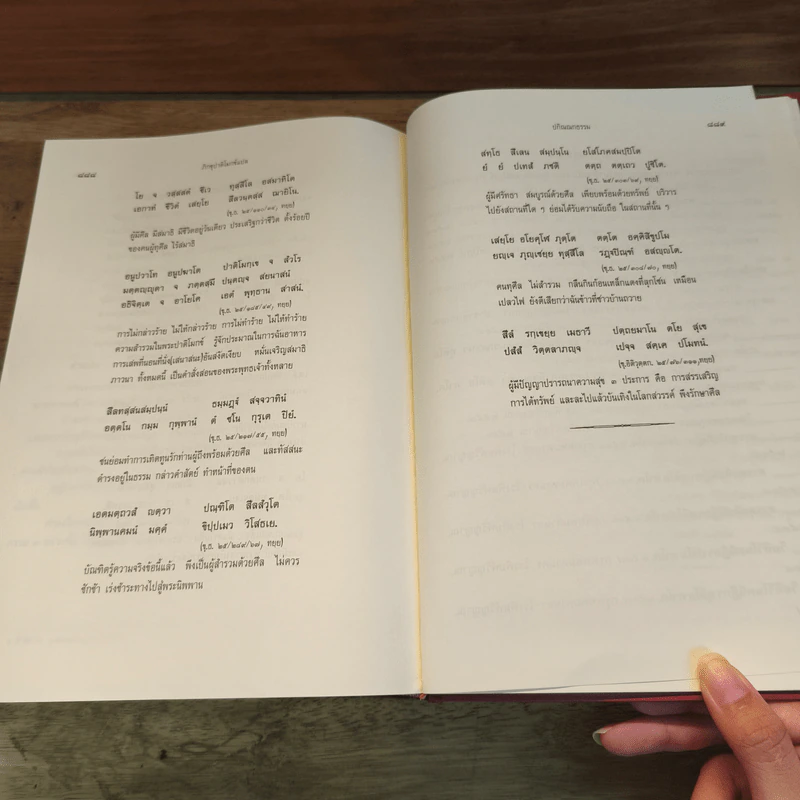 ๘๘๘
ภิกขุปาติโมกข์แปล
โย จ วสฺสสตํ ชีเว ทุสฺสีโล อสมาหิโต
เอกาหํ ชีวิตํ เสยฺโย สีลวนฺตสฺส ฌายิโน.
(ขุ.ธ. ๒๕/๑๑๐/๓๔, ทยฺย)
ผู้มีศีล มีสมาธิ มีชีวิตอยู่วันเดียว ประเสริฐกว่าชีวิต ตั้งร้อยปี
ของคนผู้ทุศีล ไร้สมาธิ
อนูปวาโท อนูปฆาโต ปาติโมกฺเข จ สํวโร
มตฺตญฺญุตา จ ภตฺตสฺมึ ปนฺตญฺจ สยนาสนํ
อธิจิตฺเต จ อาโยโค เอตํ พุทฺธาน สาสนํ.
(ขุ.ธ. ๒๕/๑๘๕/๔๙, ทยฺย)
การไม่กล่าวร้าย ไม่ให้กล่าวร้าย การไม่ทำร้าย ไม่ให้ทำร้าย
ความสำรวมในพระปาติโมกข์ รู้จักประมาณในการฉันอาหาร
การเสพที่นอนที่นั่ง(เสนาสนะ)อันสงัดเงียบ หมั่นเจริญสมาธิ
ภาวนา ทั้งหมดนี้ เป็นคำสั่งสอนของพระพุทธเจ้าทั้งหลาย
สีลทสฺสนสมฺปนฺนํ ธมฺมฏฺฐํ สจฺจวาทินํ
อตฺตโน กมฺม กุพฺพานํ ตํ ชโน กุรุเต ปิยํ.
(ขุ.ธ. ๒๕/๒๑๗/๕๕, ทยฺย)
ชนย่อมทำการเทิดทูนรักท่านผู้ถึงพร้อมด้วยศีล และทัสสนะ
ดำรงอยู่ในธรรม กล่าวคำสัตย์ ทำหน้าที่ของตน
เอตมตฺถวสํ ญตฺวา ปณฺฑิโต สีลสํวุโต
นิพฺพานคมนํ มคฺคํ ขิปฺปเมว วิโสธเย.
(ขุ.ธ. ๒๕/๒๘๙/๖๗, ทยฺย)
บัณฑิตรู้ความจริงข้อนี้แล้ว พึงเป็นผู้สำรวมด้วยศีล ไม่ควร
ชักช้า เร่งชำระทางไปสู่พระนิพพาน
ปกิณณกธรรม
๘๘๙
สทฺโธ สีเลน สมฺปนฺโน ยโสโภคสมปฺปิโต
ยํ ยํ ปเทสํ ภชติ ตตฺถ ตตฺเถว ปูชิโต.
(ขุ.ธ. ๒๕/๓๐๓/๖๙, ทยฺย)
ผู้มีศรัทธา สมบูรณ์ด้วยศีล เพียบพร้อมด้วยทรัพย์ บริวาร
ไปยังสถานที่ใด ๆ ย่อมได้รับความนับถือ ในสถานที่นั้น ๆ
เสยฺโย อโยคุโฬ ภุตฺโต ตตฺโต อคฺคิสิขูปโม
ยญฺเจ ภุญฺเชยฺย ทุสฺสีโล รฏฺฐปิณฺฑํ อสญฺญโต.
(ขุ.ธ. ๒๕/๓๐๘/๗๐, ทยฺย)
คนทุศีล ไม่สำรวม กลืนกินก้อนเหล็กแดงที่ลุกโชน เหมือน
เปลวไฟ ยังดีเสียกว่าฉันข้าวที่ชาวบ้านถวาย
สีลํ รกฺเขยฺย เมธาวี ปตฺถยมาโน ตโย สุเข
ปสํสํ วิตฺตลาภญฺจ เปจฺจ สคฺเค ปโมทนํ.
(ขุ.อิติวุตฺตก. ๒๕/๗๖/๓๑๑,ทยฺย)
ผู้มีปัญญาปรารถนาความสุข ๓ ประการ คือ การสรรเสริญ
การได้ทรัพย์ และละไปแล้วบันเทิงในโลกสวรรค์ พึงรักษาศีล